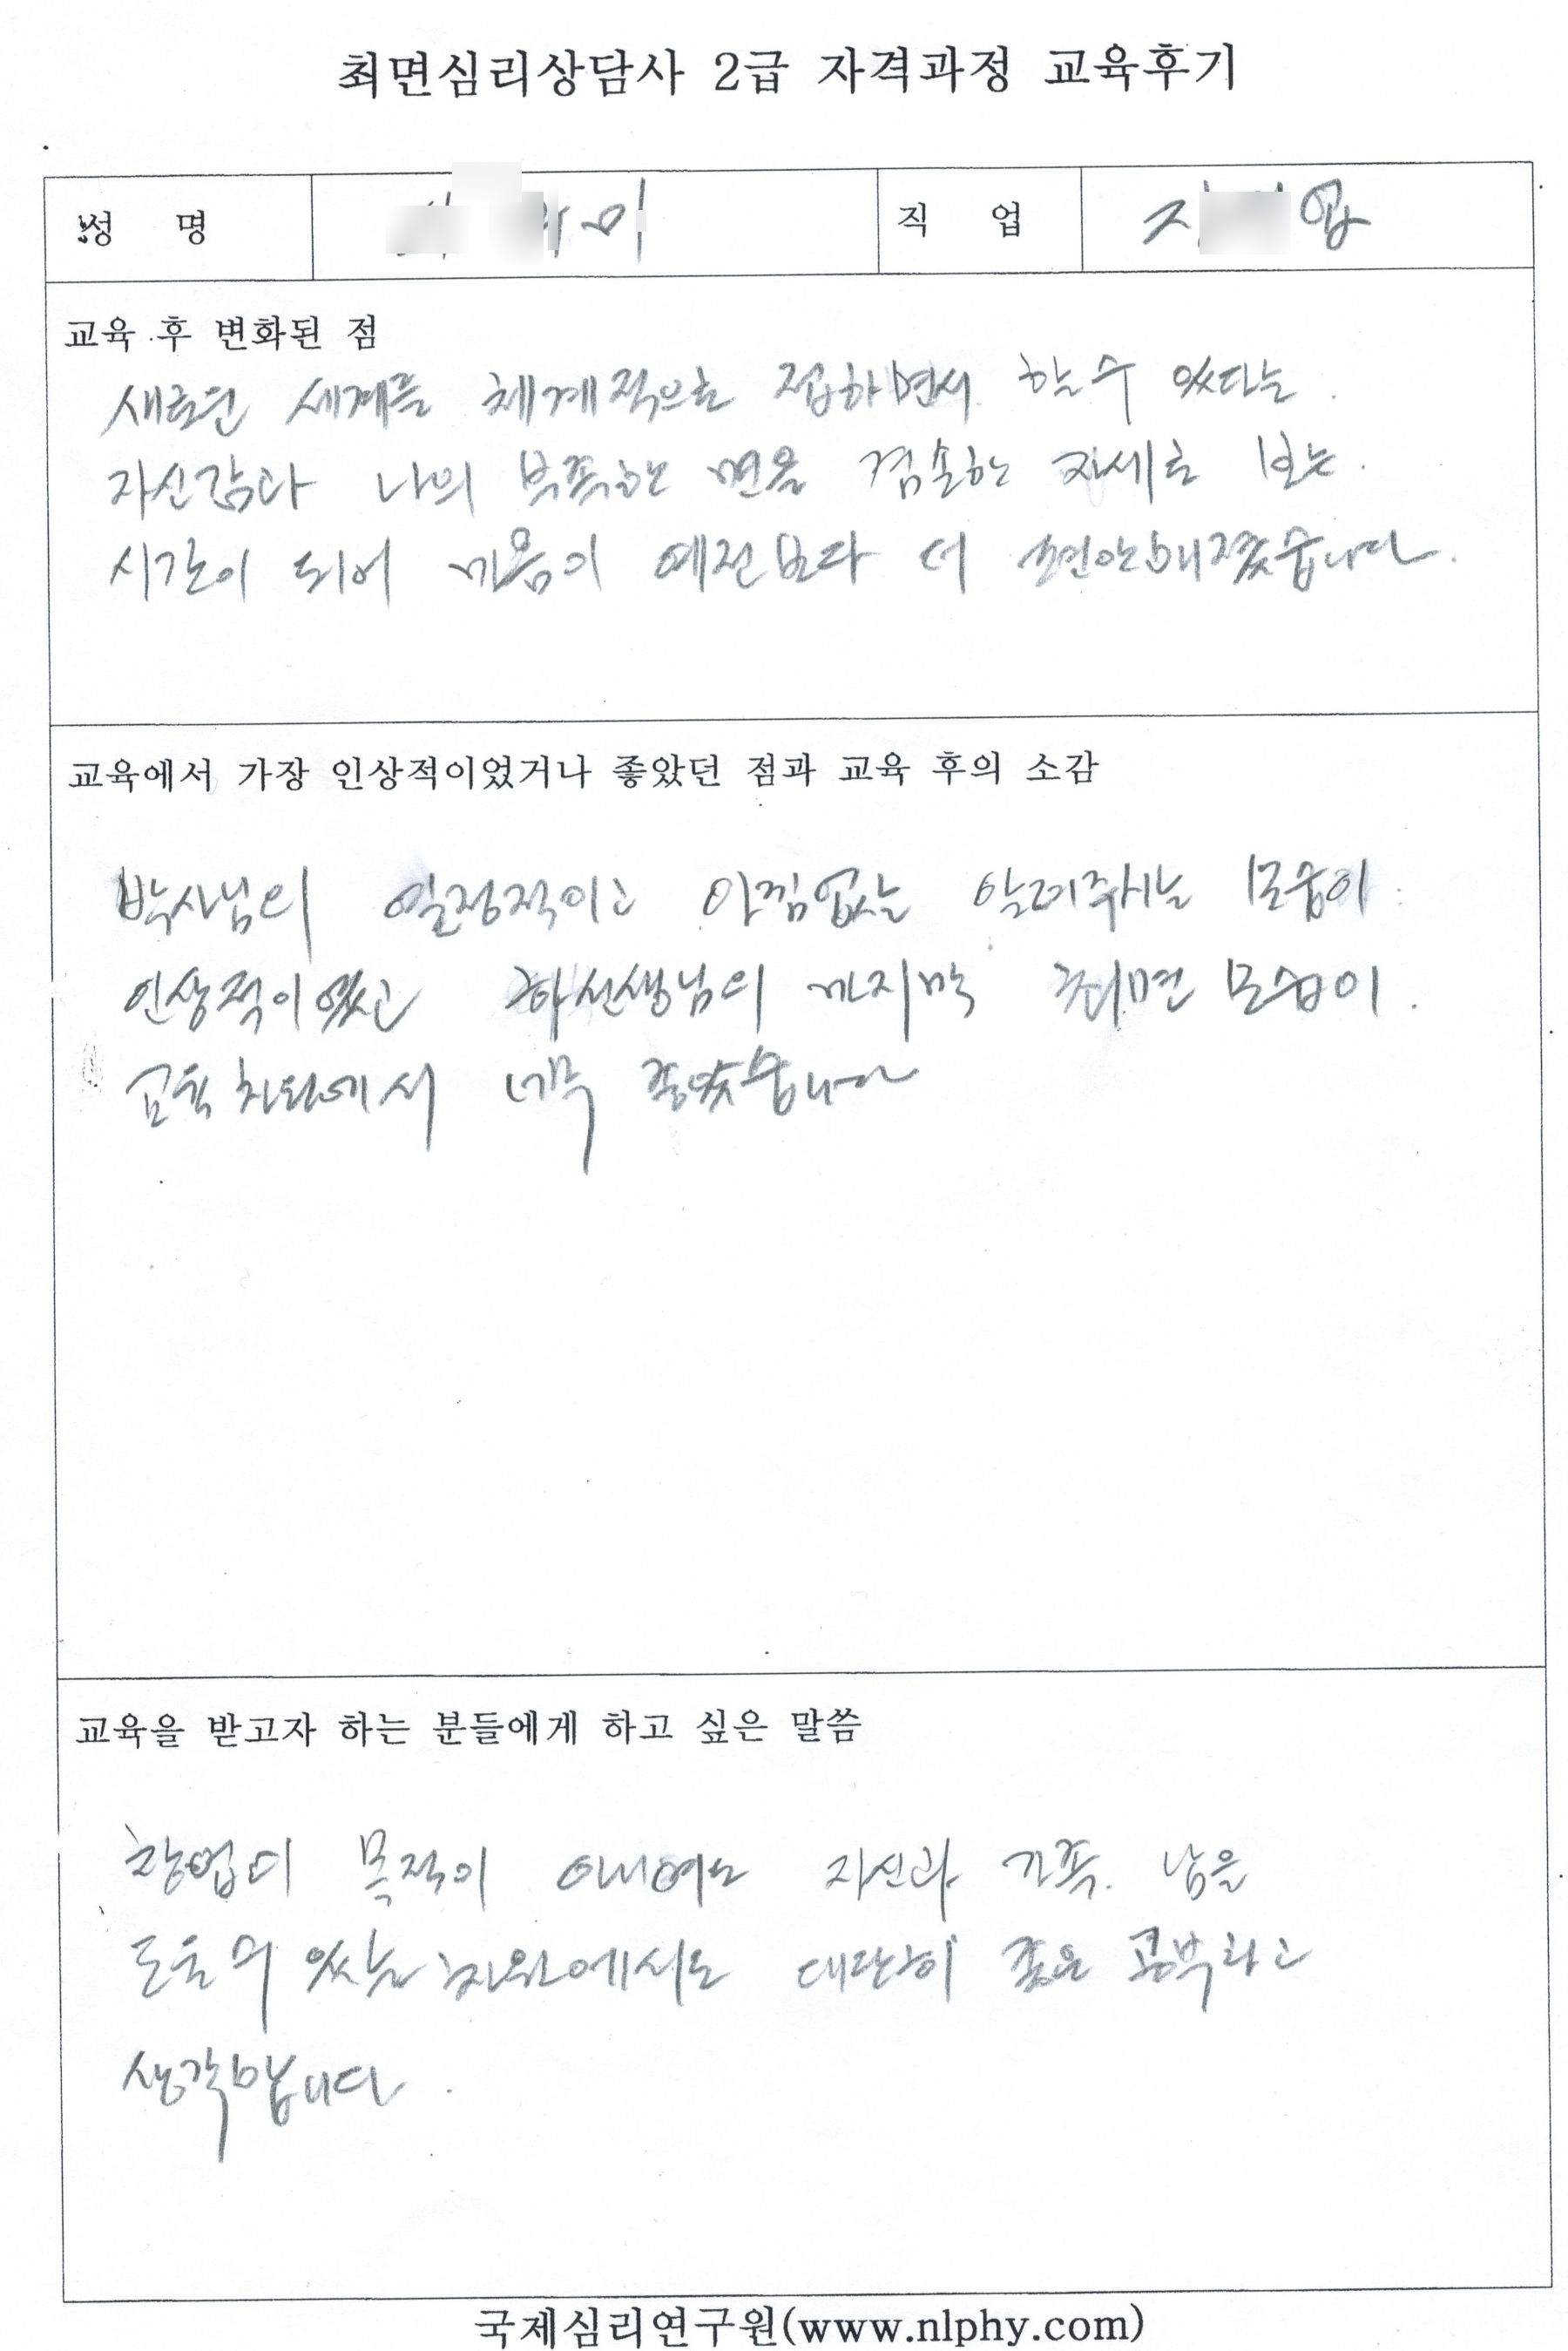 최면심리상담사 2급 자격과정 교육후기
성 명 미 직 업 업
교육 후 변화된 점
새로운 세계를 체계적으로 접하면서 할 수 있다는
자신감과 나의 부족한 면을 겸손한 자세로 보는
시간이 되어 마음이 예전보다 더 편안해졌습니다.
교육에서 가장 인상적이었거나 좋았던 점과 교육 후의 소감
박사님의 열정적이고 아낌없는 알려주시는 모습이
인상적이였고 하선생님의 마지막 최면 모습이
교육 차원에서 너무 좋았습니다
교육을 받고자 하는 분들에게 하고 싶은 말씀
창업의 목적이 아니여도 자신과 가족. 남을
도울 수 있는 차원에서도 대단히 좋은 공부라고
생각합니다.
국제심리연구원(www.nlphy.com)